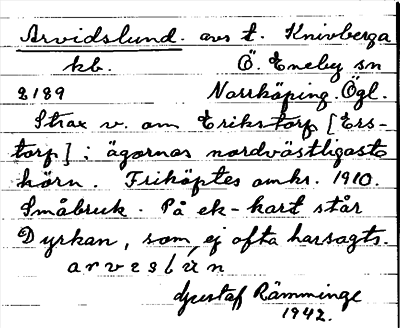 Arvidslund. avs t. Knivberga
kb. Ö. Eneby sn
2189 Norrköping. Ögl.
Strax v. om Erikstorp [Ers-
torp] i ägornas nordvästligaste
hörn. Friköptes omkr. 1910.
Småbruk. På ek-kart står
Dyrkan, som ej ofta har sagts.
arveslún
Gustaf Rämminge
1942.